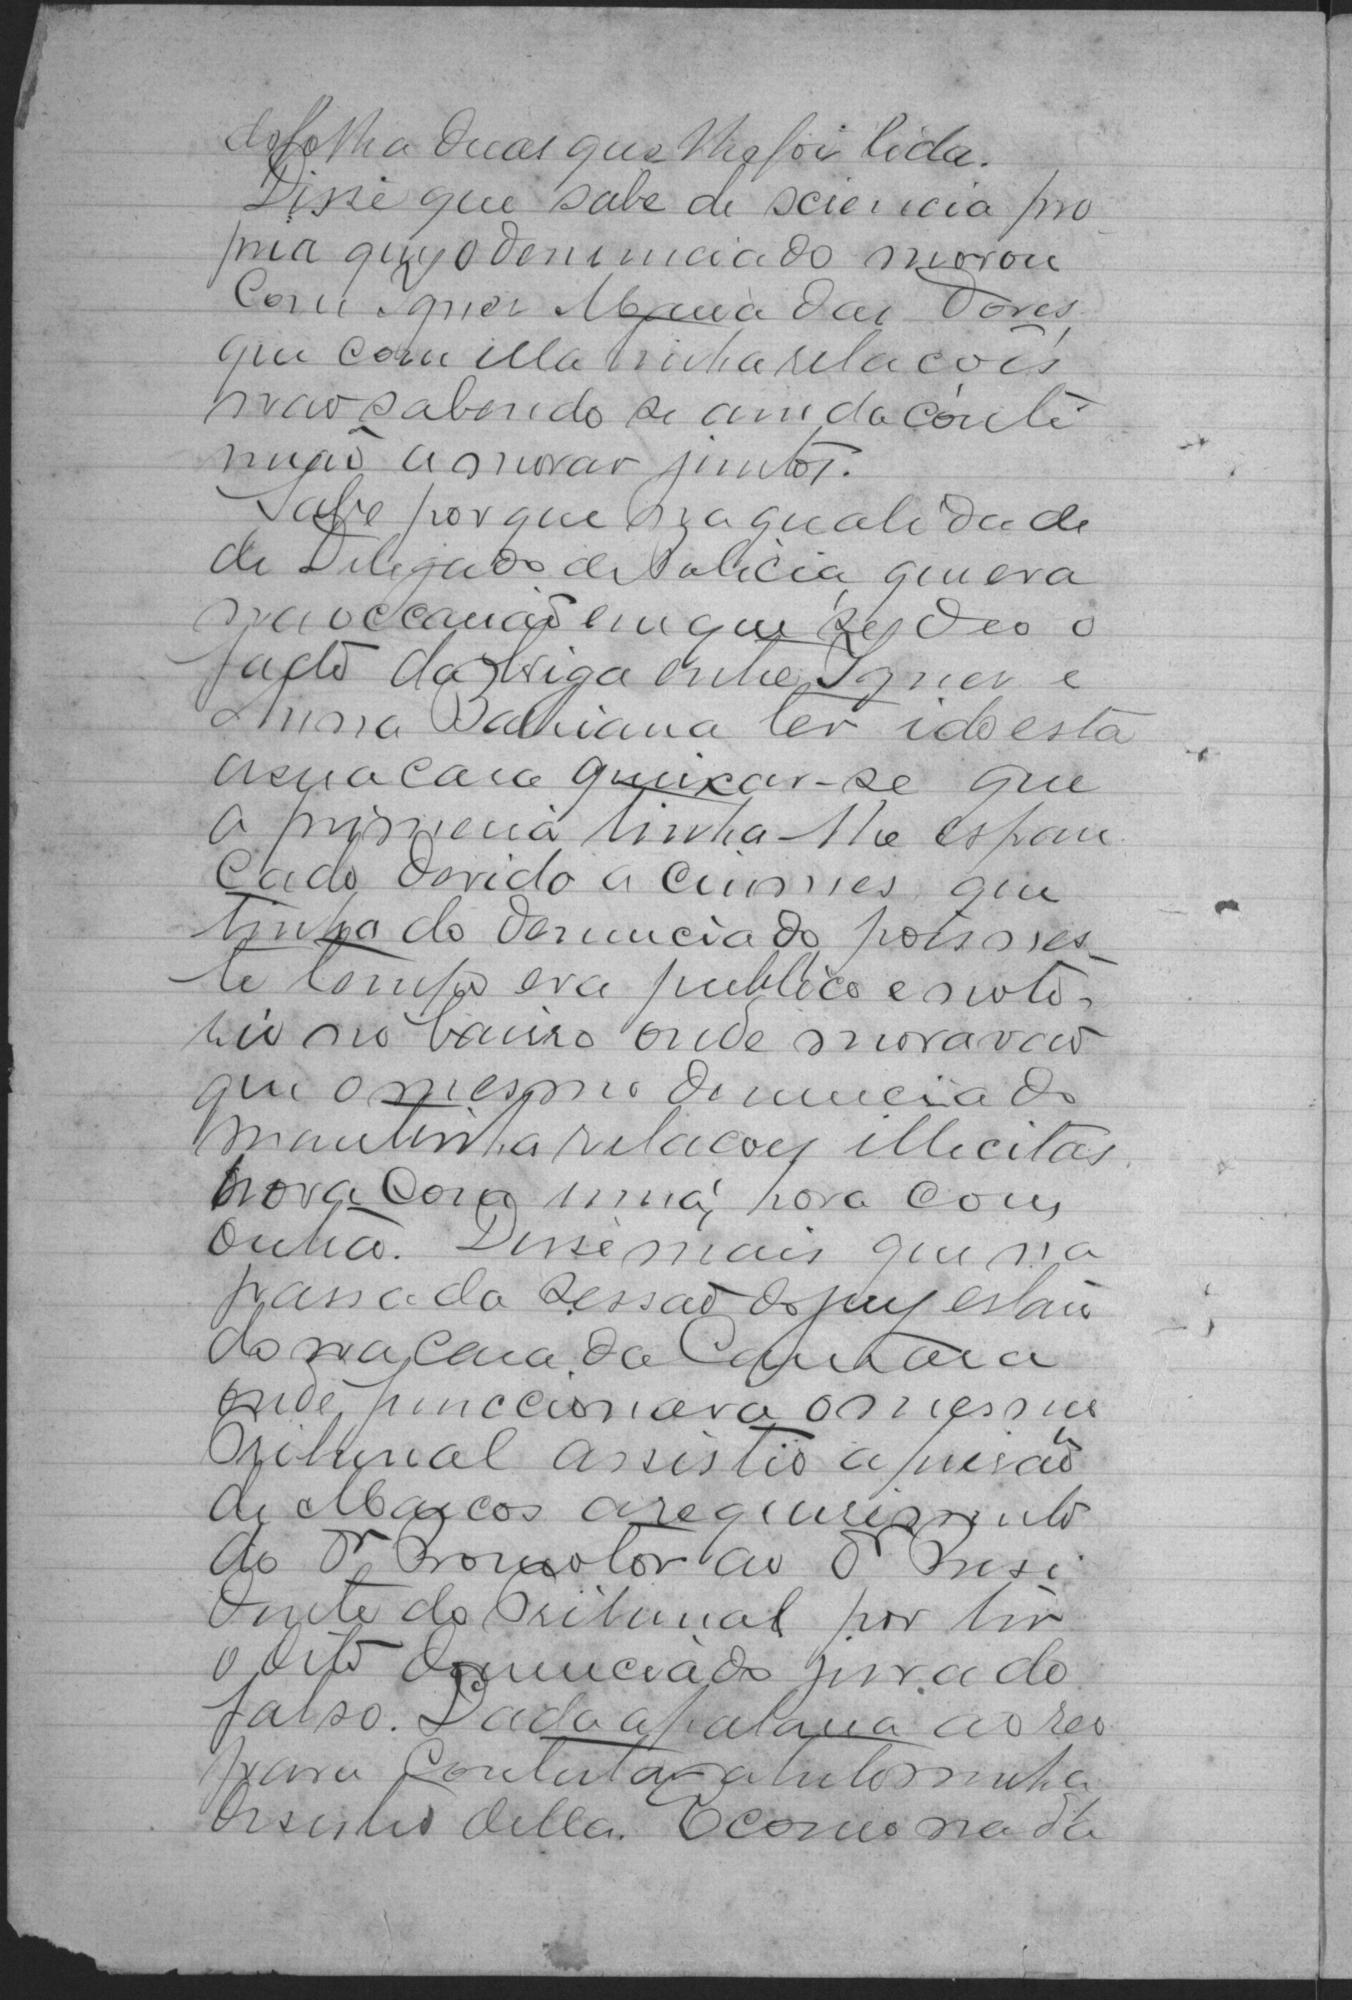 de folha duas que lhe foi lida.
Disse que sabe de sciencia pro
pria que o denunciado morou
com Ignez Maria das Dores,
que com ella tinha relacoēs
não sabendo se ainda conti
nuão a morar juntos.
Sabe por que na qualidade
de Delegado de Policia, que era
na occasião em que se deo o
facto da briga entre Ignez e
Anna Bahiana ter ido esta
a sua casa queixar-se que
a primeira tinha-lhe espan
cado devido a ciumes que
tinha do denunciado, pois nes
te tempo era publico e noto-
rio no bairro onde moravão
que o mesmo denunciado
mantinha relacoes illicitas
hora com uma, hora com
outra. Disse mais que na
passada sessão do jury estan
do na casa da Camara
onde funccionava o mesmo
Tribunal assistio a prisão
de Marcos a requerimento
do Dr Promotor ao Dr Presi
dente do Tribunal por ter
o dito denunciado jurado
falso. Dada a palavra ao reo
para contestar a testemunha
disistio della. E como nada